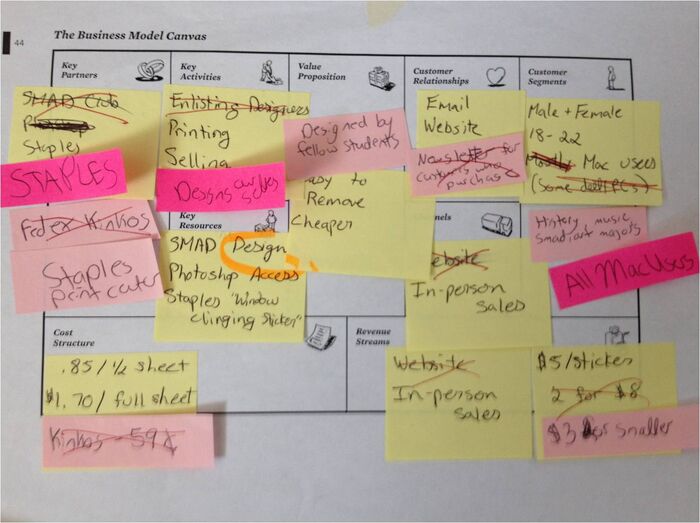 44
The Business Model Canvas
Key
Partners
SMAD Club
Staples
STAPLES
Fedex Kinkos
Staples
print center
Key
Activities
Enlisting Designers
Printing
Selling
Designs ourselves
Key
Resources
SMAD Design
Photoshop Access
Staples "Window
Clinging Sticker"
Value
Proposition
Designed by
fellow students
easy to
Remove
Cheaper
Customer
Relationships
Email
Website
Newsletter for
customers who
purchase
Website
In-person
sales
Customer
Segments
Male + Female
18-22
Mostly Mac users
(Some dell/PCs)
History music
Smad/art majors
All Mac Users
Cost
Structure
.85/½ sheet
$1.70/full sheet
Kinkos - 59¢
Revenue
Streams
Website
In-person
sales
$5/sticker
2 for $8
$3 for smaller